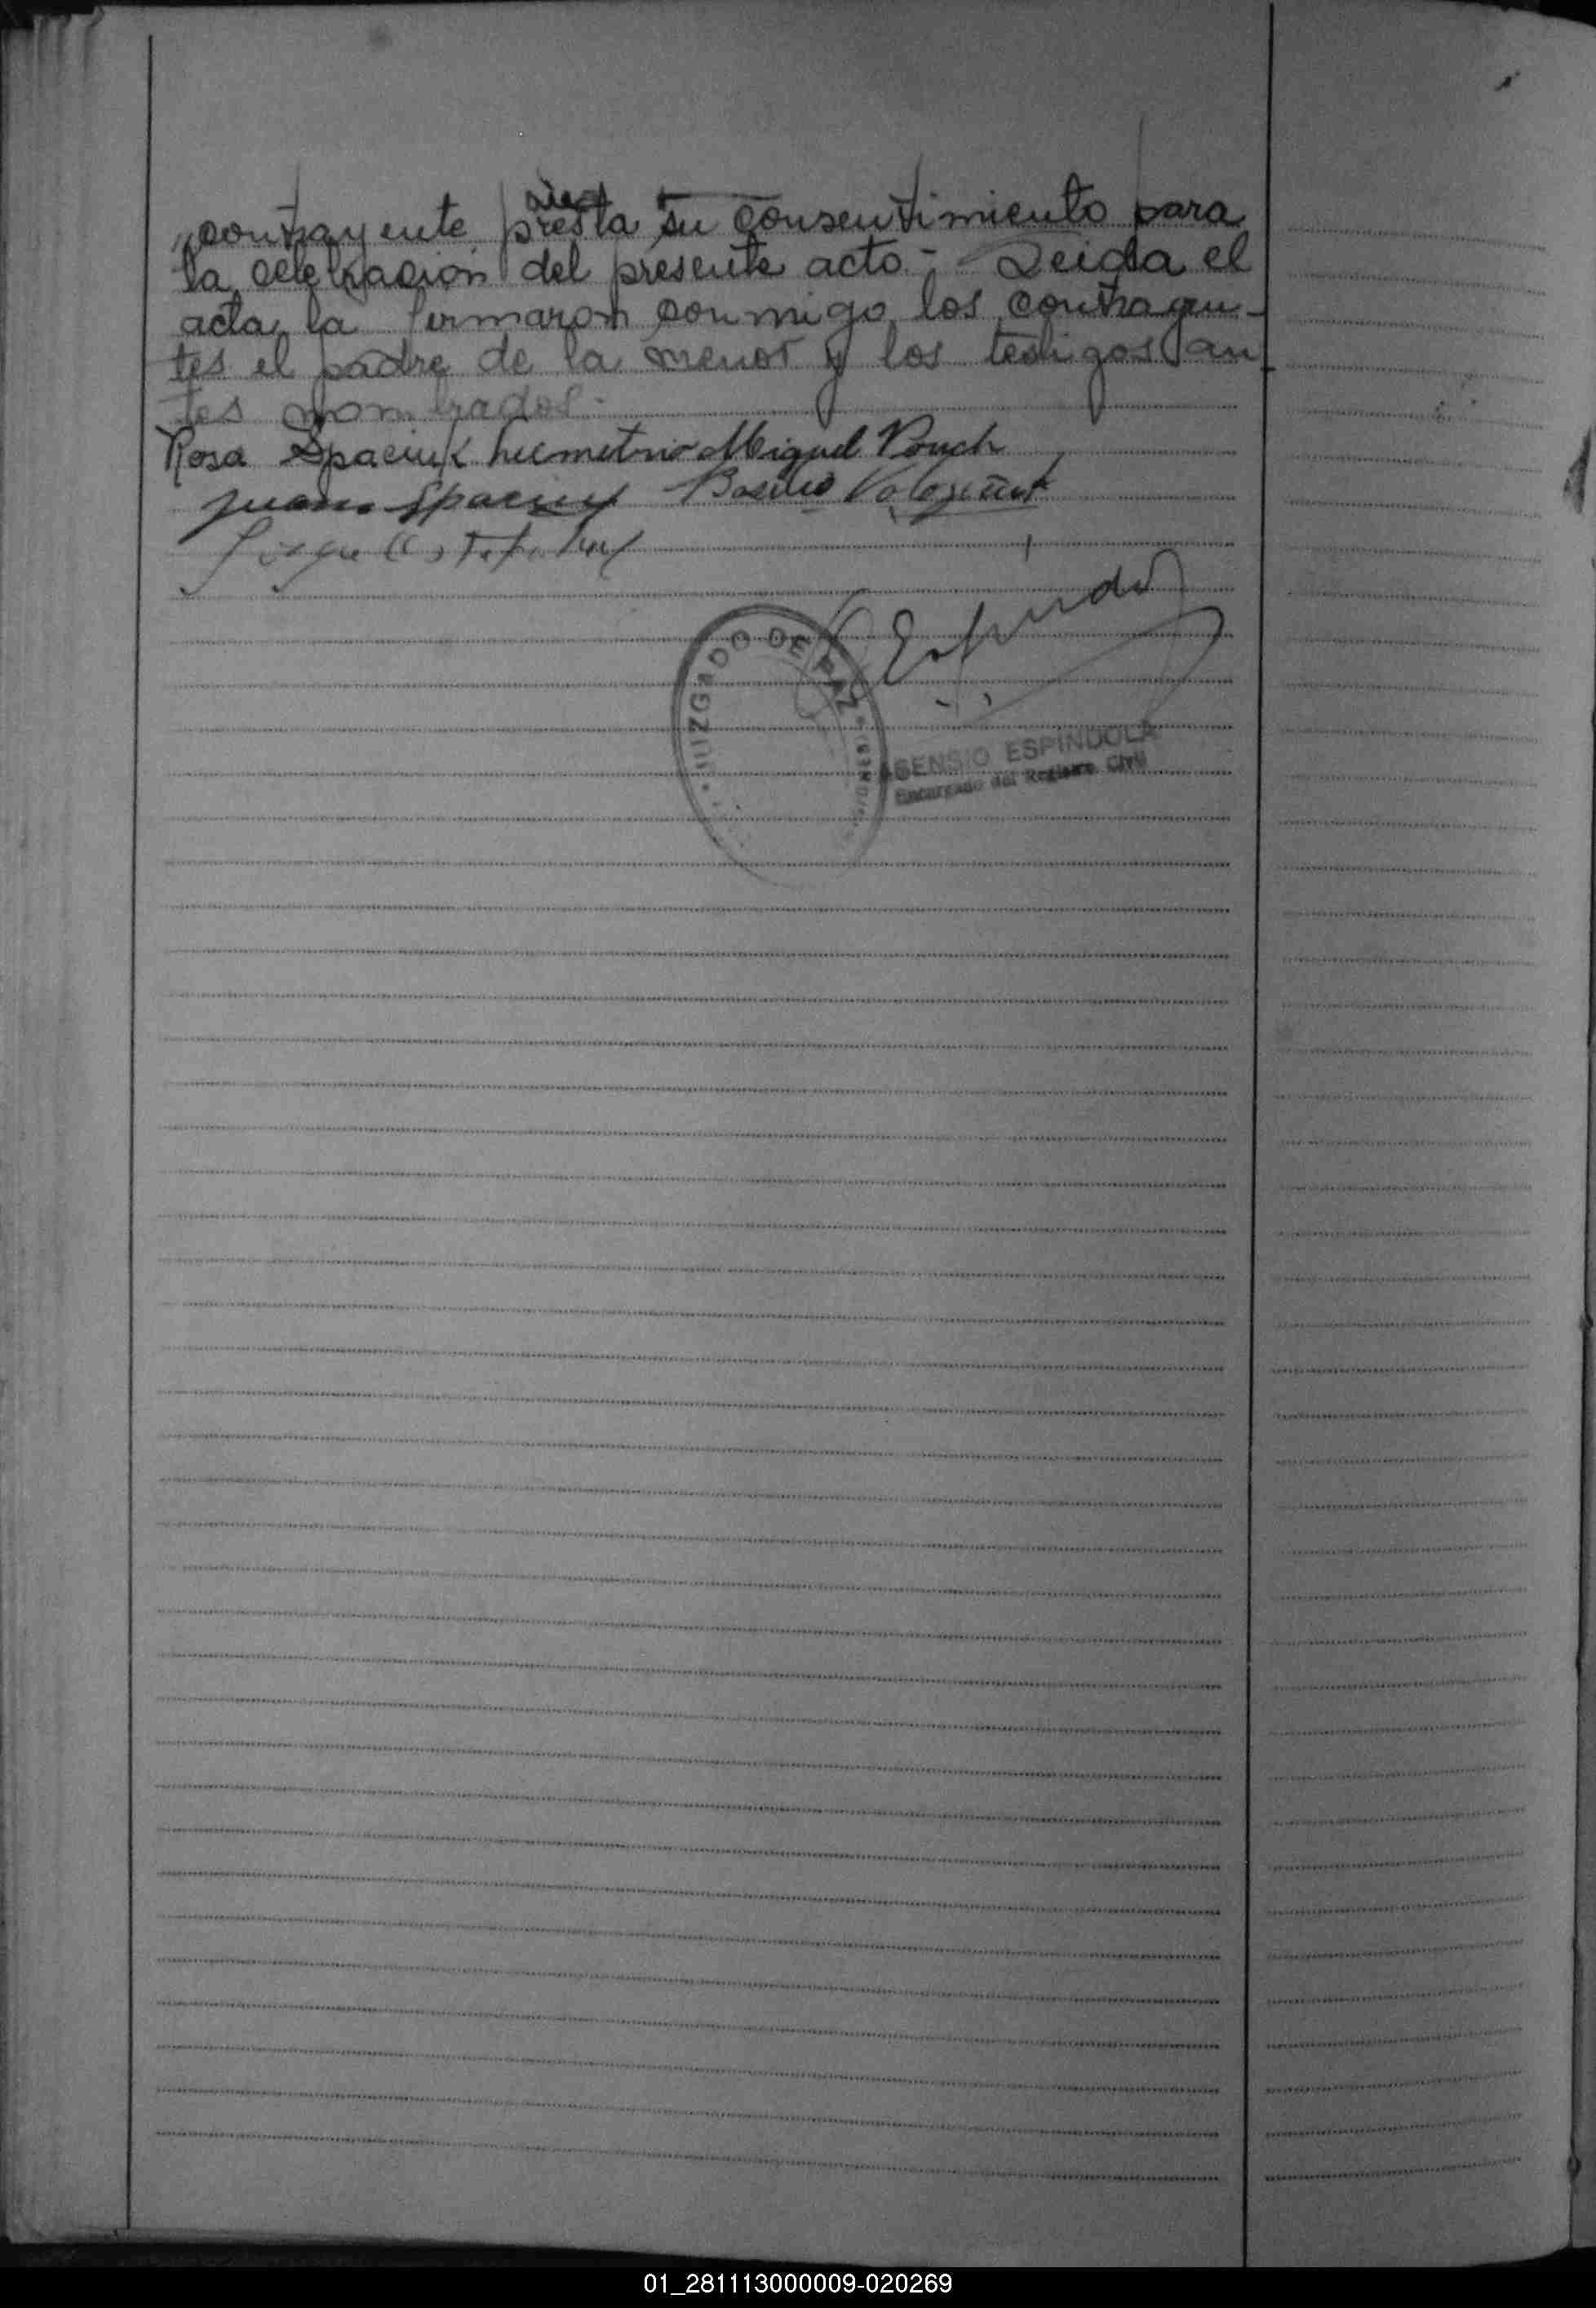 contrayente presta su consentimiento para
la celebracion del presente acto.- Leida el
acta, la firmaron conmigo, los contrayen-
tes el padre de la menor y los testigos an
tes nombrados.-
Rosa Spaciuk Miguel
Juan Spaciuk Basilio
JUZGADO DE PAZ
ASENSIO ESPINDOLA
Encargado del Registro Civil
01_281113000009-020269